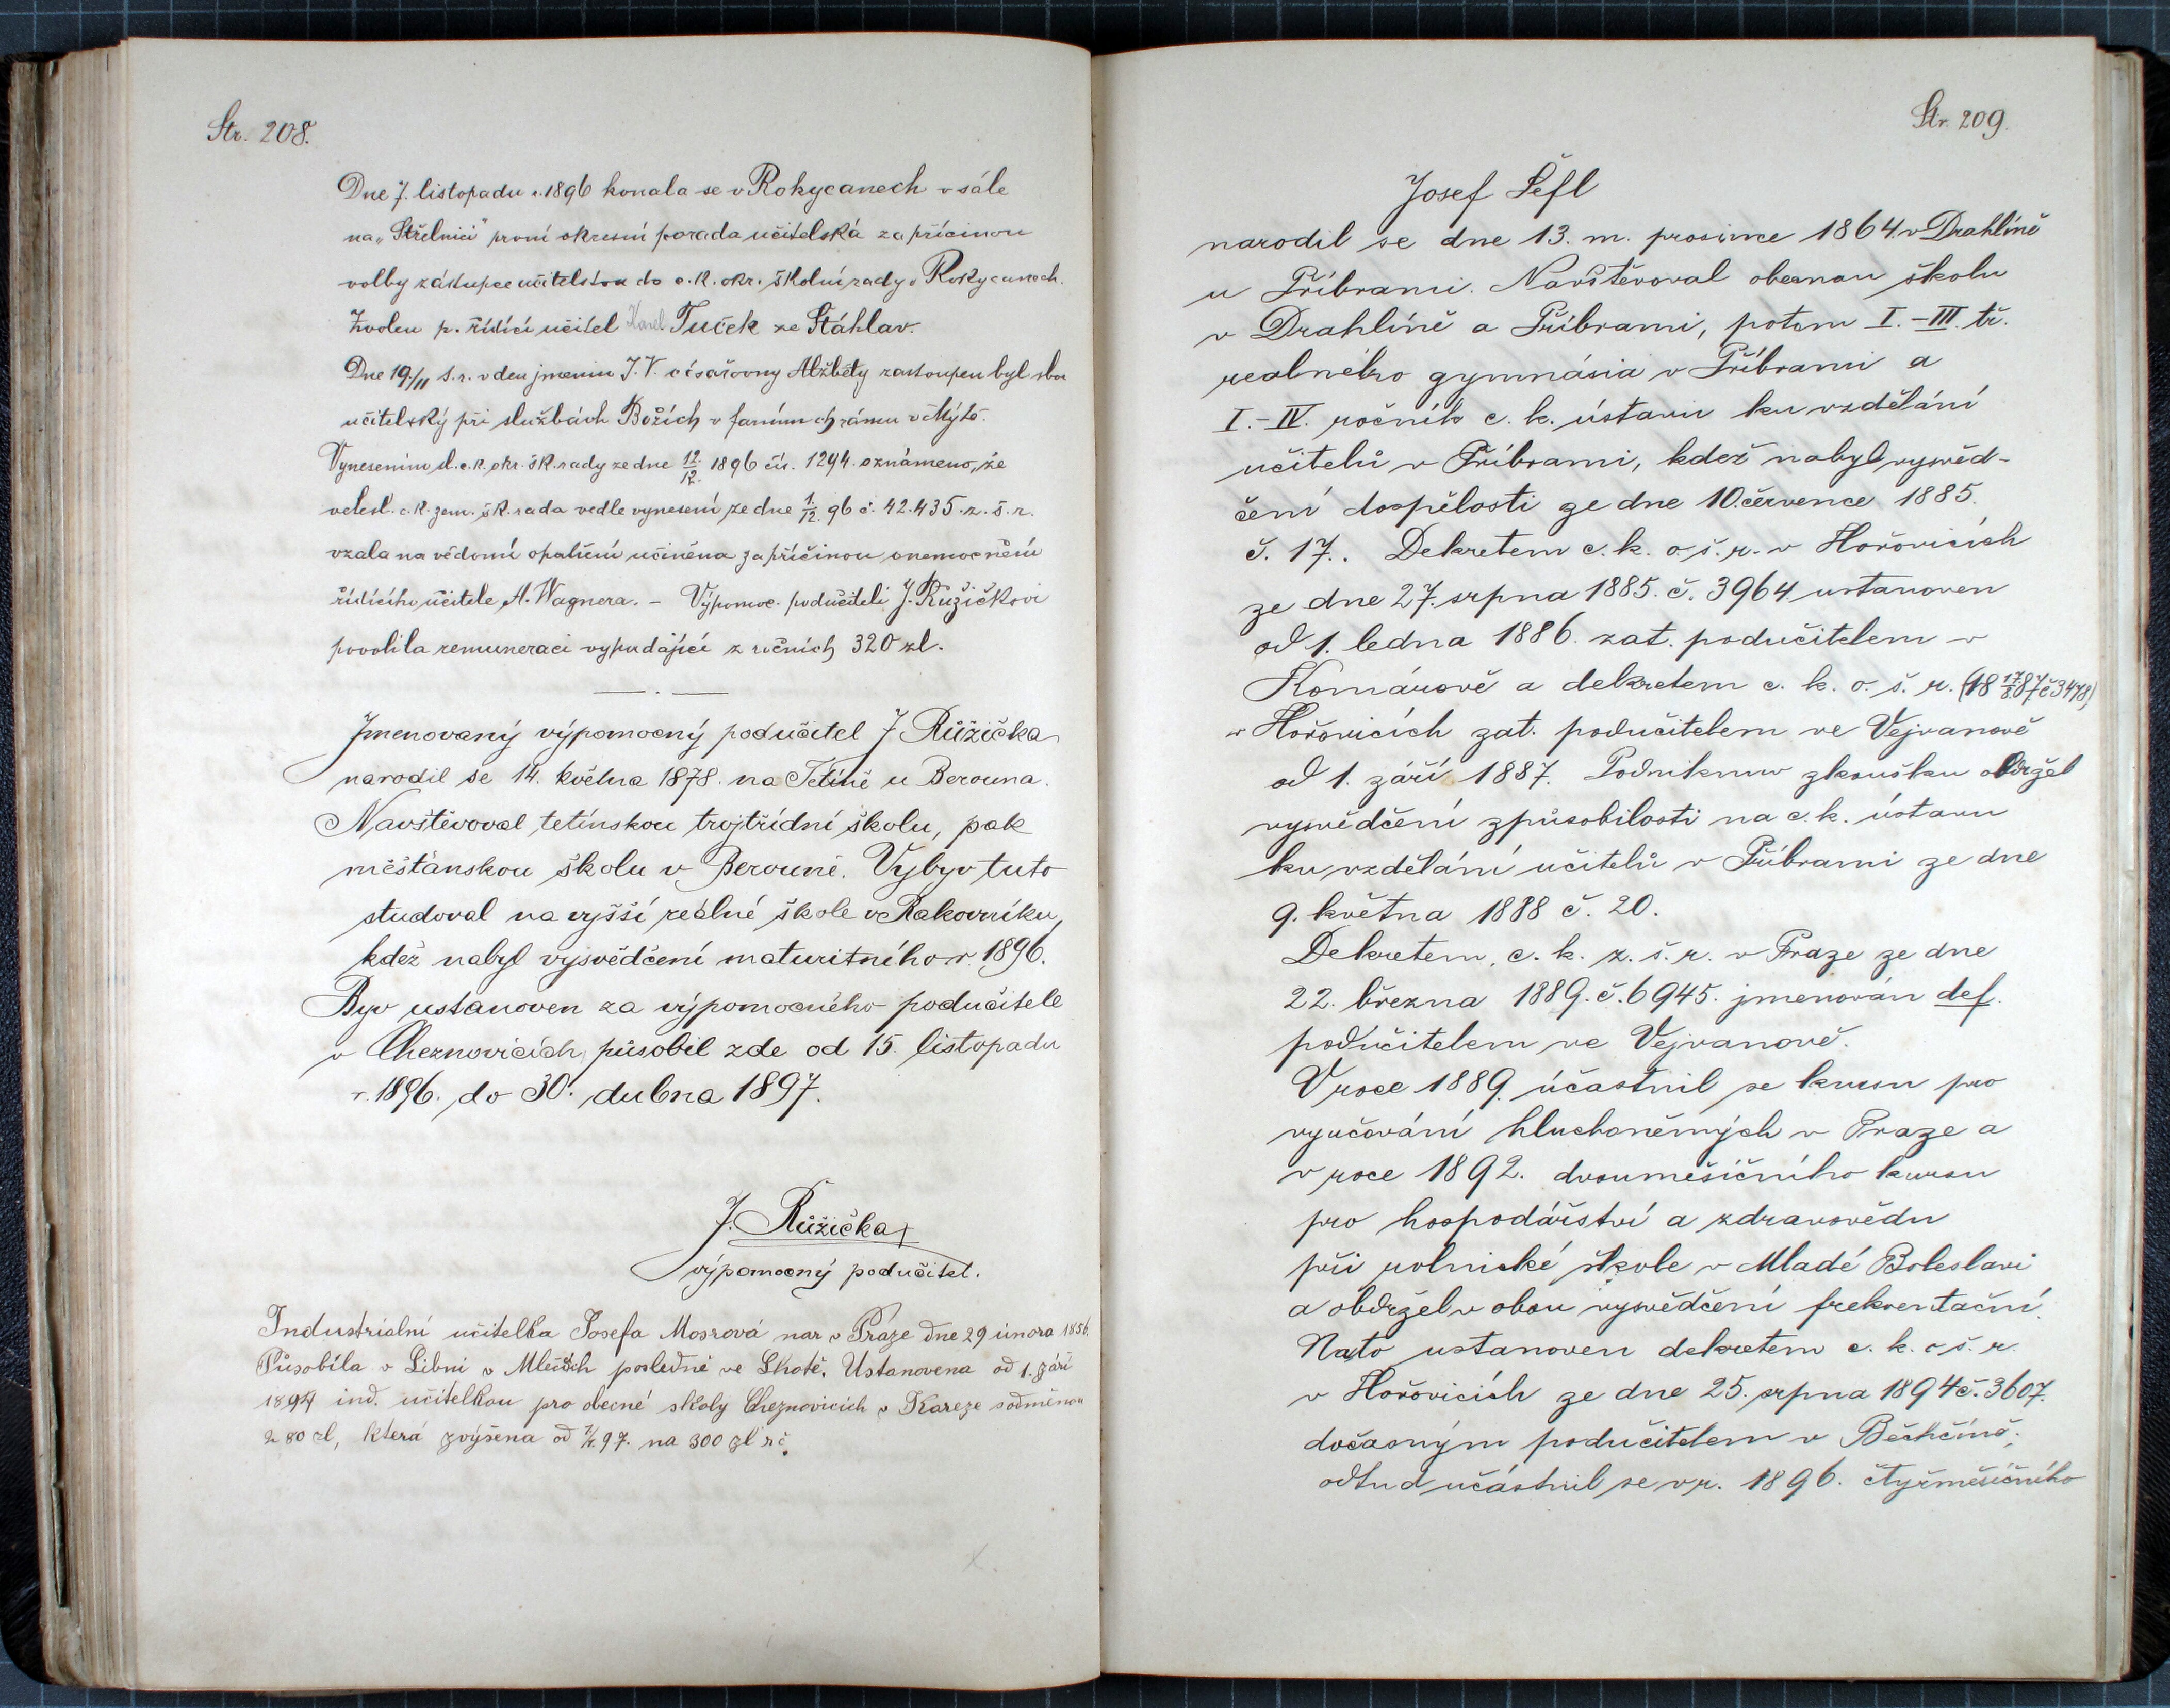 Str. 208.
Dne 7. listopadu r. 1896 konala se v Rokycanech v sále
na „Střelnici" první okresní porada učitelská za příčinou
volby zástupce učitelstva do c. k. okr. školní rady v Rokycanech.
Zvolen p. řídící učitel Karel Tuček ze Štáhlav.
Dne 19./11 t. r. v den jmenin J. V. císařovny Alžběty zastoupen byl sbor
učitelský při službách Božích v farním chrámu v Mýtě.
Vynesením sl. c. k. okr. šk. rady ze dne 12./12. 1896 čís. 1294. oznámeno, že
velesl. c. k. zem. šk. rada vedle vynesení ze dne 1./12. 96 č. 42.435. z. š. r.
vzala na vědomí opatření učiněná za příčinou onemocnění
řídícího učitele A. Wagnera. – Výpomoc. podučiteli J. Růžičkovi
povolila remuneraci vypadající z ročních 320 zl.
Jmenovaný výpomocný podučitel J Růžička
narodil se 14. května 1878. na Tetíně u Berouna.
Navštěvoval tetínskou trojtřídní školu, pak
měšťanskou školu v Berouně. Vybyv tuto
studoval na vyšší reálné škole v Rakovníku,
kdež nabyl vysvědčení maturitního r. 1896.
Byv ustanoven za výpomocného podučitele
v Cheznovicích, působil zde od 15. listopadu
r. 1896. do 30. dubna 1897.
J. Růžička
výpomocný podučitel.
Industrialní učitelka Josefa Mosrová nar v Praze dne 29 února 1856.
Působila v Libni v posledně ve Lhotě. Ustanovena od 1. září
1894 ind. učitelkou pro obecné školy Cheznovicích v Kareze s odměnou
280 zl, která zvýšena od 97. na 300 zl rč.
Str. 209.
Josef Šefl
narodil se dne 13. m. prosince 1864. v Drahlíně
u Příbrami. Navštěvoval obecnou školu
v Drahlíně a Příbrami, potom I.–III. tř.
realného gymnásia v Příbrami a
I.–IV. ročník c. k. ústavu ku vzdělání
učitelů v Příbrami, kdež nabyl vysvěd-
čení dospělosti ze dne 10. července 1885.
č. 17.. Dekretem c. k. o. š. r. v Hořovicích
ze dne 27. srpna 1885. č. 3964 ustanoven
od 1. ledna 1886. zat. podučitelem v
Komárově a dekretem c. k. o. š. r. (18 17/8. 87 č 3478)
v Hořovicích zat. podučitelem ve Vejvanově
od 1. září 1887. Podniknuv zkoušku obdržel
vysvědčení způsobilosti na c. k. ústavu
ku vzdělání učitelů v Příbrami ze dne
9. května 1888 č. 20.
Dekretem, c. k. z. š. r. v Praze ze dne
22. března 1889. č. 6945. jmenován def.
podučitelem ve Vejvanově.
V roce 1889. účastnil se kursu pro
vyučování hluchoněmých v Praze a
v roce 1892. dvouměsíčního kursu
pro hospodářství a zdravovědu
při rolnické škole v Mladé Boleslavi
a obdržel v obou vysvědčení frekventační.
Nato ustanoven dekretem c. k. o š. r.
v Hořovicích ze dne 25. srpna 1894 č. 3607.
dočasným podučitelem v Běchčíně;
odtud učástnil se v r. 1896. čtyřměsíčního